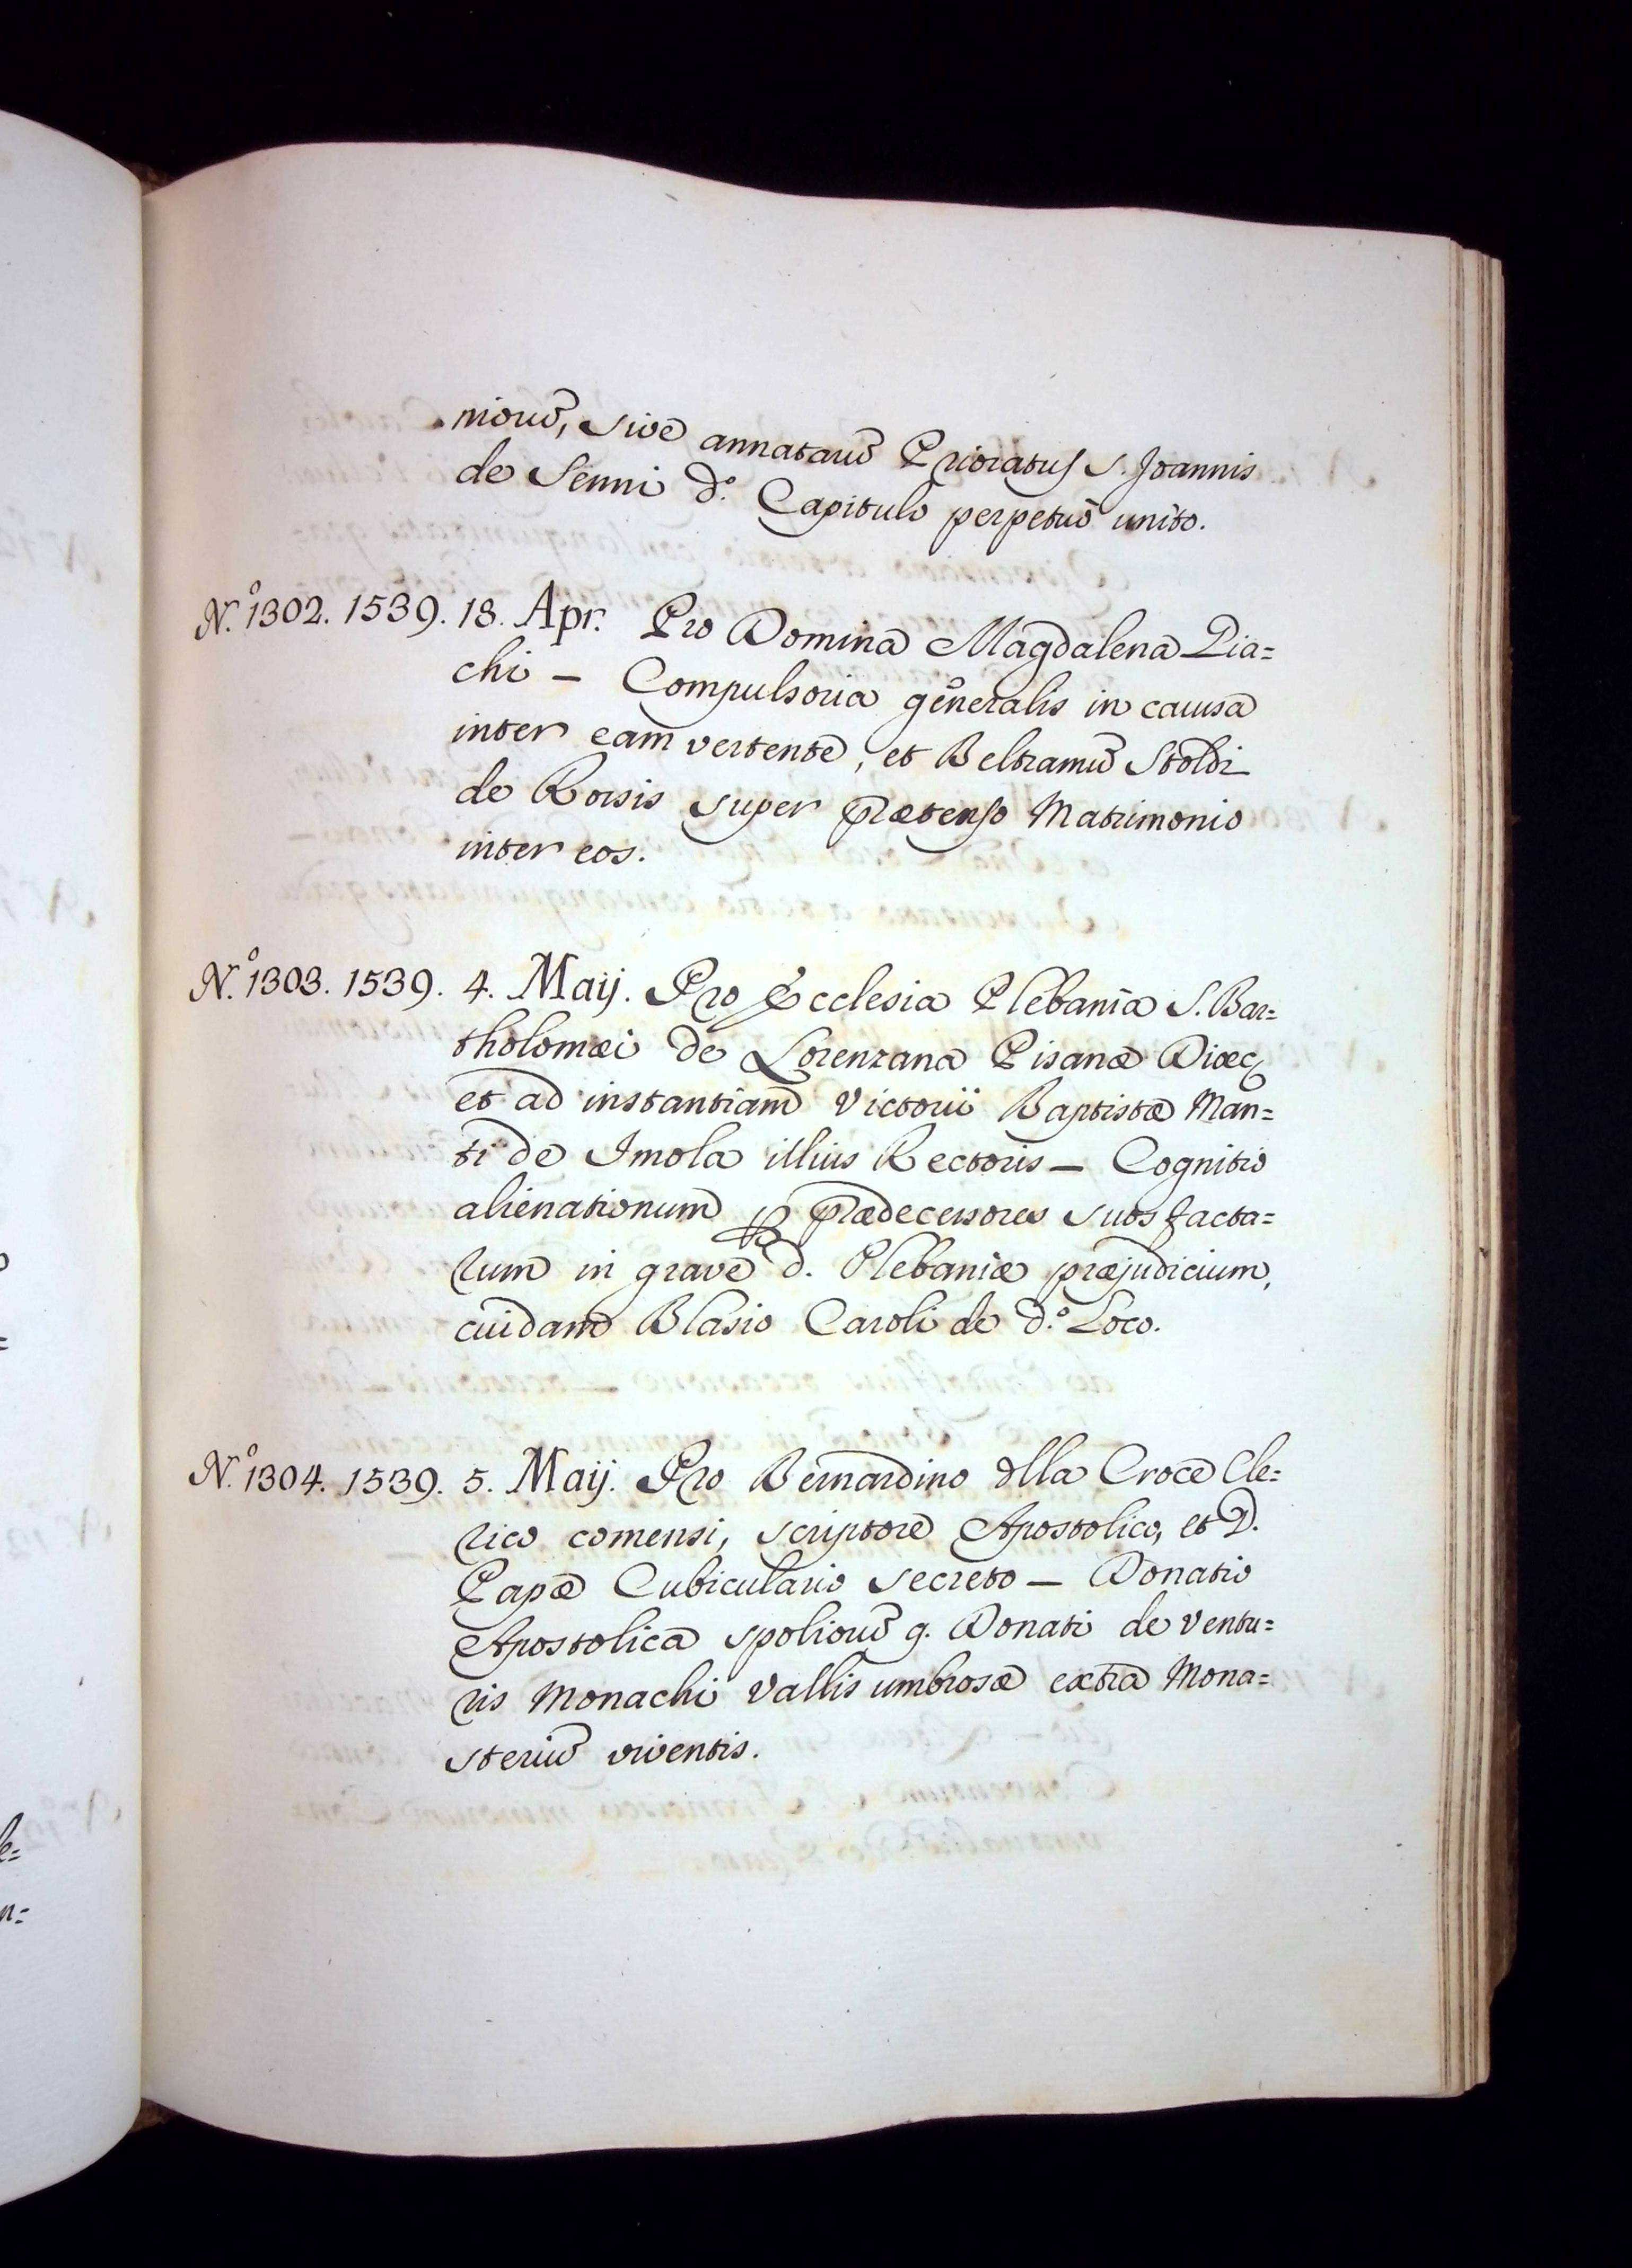 niorū, sive annatarū Prioratus S. Joannis
de Senni d.º Capitulo perpetuò unito.
N.º 1302. 1539. 18. Apr. Pro Domina Magdalena Dia=
chi – Compulsoria gñeralis in causa
inter eam vertente, et Beltramū Stoldi
de Rorsis super prætenso Matrimonio
inter eos.
N.º 1303. 1539. 4. Maij. Pro Ecclesia Plebania S. Bar=
tholomæi de Lorenzana Pisanæ Diœc.
et ad instantiam Victorii Baptistæ Man=
ti de Imola illius Rectoris – Cognitio
alienationum ꝑ prædecessores suos facta=
rum in grave d. Plebaniæ præjudicium,
cuidam Blasio Caroli de d.º Loco.
N.º 1304. 1539. 5. Maij. Pro Bernardino dlla Croce Cle=
rico comensi, scriptore Apostolico, et D.
Papæ Cubiculario secreto – Donatio
Apostolica spoliorū q. Donati de Ventu=
ris Monachi Vallis umbrosæ extra Mona=
steriū viventis.